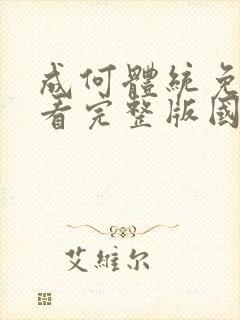 成何體統免
看完整版國
艾維尔